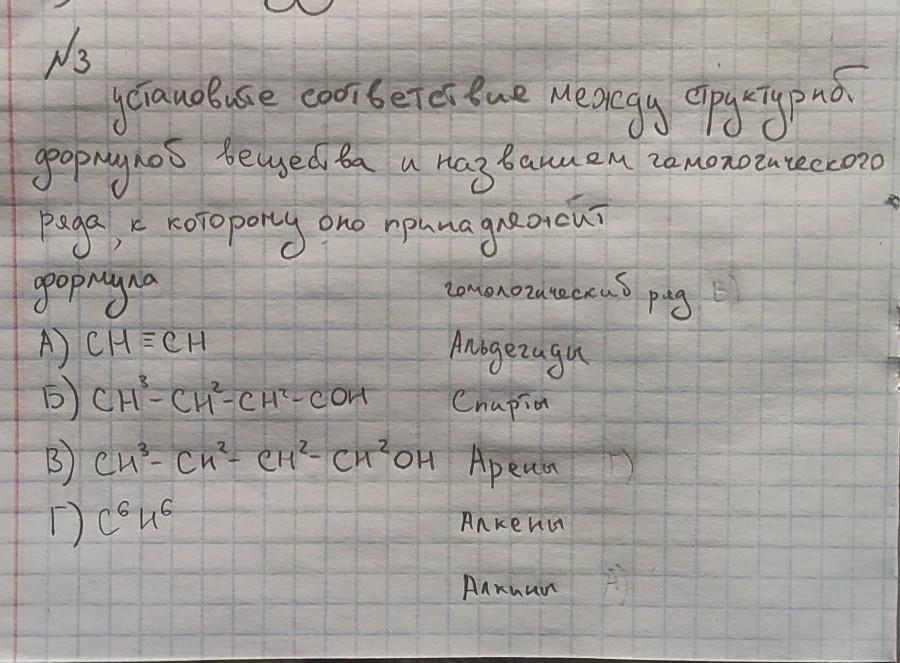 №3
установите соответствие между структурной
формулой вещества и названием гомологического
ряда, к которому оно принадлежит
формула гомологический ряд
А) CH≡CH Альдегиды
Б) CH³-CH²-CH²-COH Спирты
В) CH³-CH²-CH²-CH²OH Арены Г)
Г) C⁶H⁶ Алкены
Алкины А)